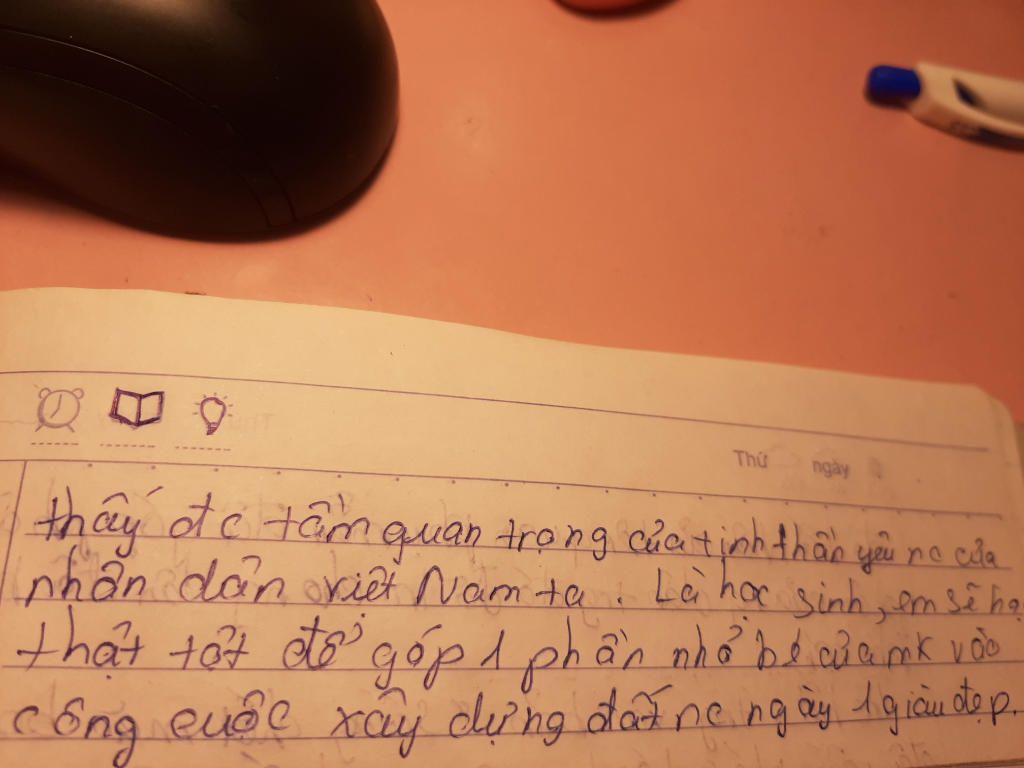 Thứ ngày
thấy đc tầm quan trọng của tinh thần yêu nc của
nhân dân việt Nam ta. Là học sinh, em sẽ họ
thật tốt để góp 1 phần nhỏ bé của mk vào
công cuộc xây dựng đất nc ngày 1 giàu đẹp.